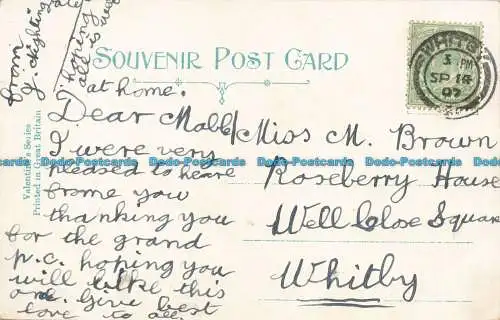 from
J. Nightingale
hoping
all is well
at home.
SOUVENIR POST CARD
WHITBY
3 PM
SP 14
07
Valentine's Series
Printed in Great Britain
Dear Moll
I were very
pleased to heare
frome you
thanking you
for the grand
p.c. hoping you
will like this
one. Give best
love to all.
Miss M. Brown
Roseberry House
Well Close Square
Whitby
Dodo-Postcards Dodo-Postcards Dodo-Postcards Dodo-Postcards Dodo-Postcards Dodo-Postcards